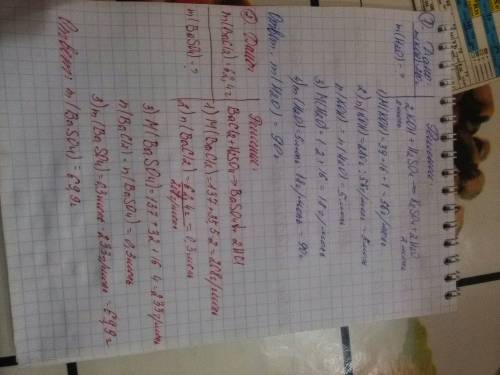 Дано:
Решение:
2KOH + H2SO4 → K2SO4 + 2H2O
m(H2O) - ?
1) M(KOH) = 39 + 16 + 1 = 56г/моль
n(KOH) = n(H2O) = 5моль
3) M(H2O) = 1·2 + 16 = 18г/моль
4) m(H2O) = 5моль · 18г/моль = 90г
Ответ: m(H2O) = 90г
Дано:
Решение:
m(BaCl2) = 62,4г
BaCl2 + H2SO4 → BaSO4 + 2HCl
m(BaSO4) - ?
1) M(BaCl2) = 137 + 35,5·2 = 208г/моль
2) n(BaCl2) = 62,4г = 0,3моль
3) M(BaSO4) = 137 + 32 + 16·4 = 233г/моль
n(BaCl2) = n(BaSO4) = 0,3моль
3) m(BaSO4) = 0,3моль · 233г/моль = 69,9г
Ответ: m(BaSO4) = 69,9г